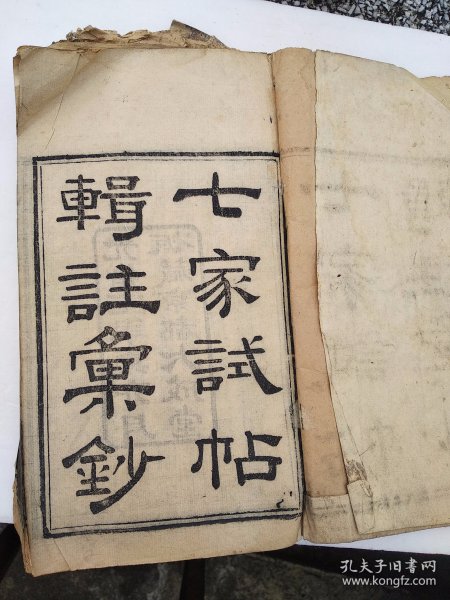 七家試帖
輯註彙鈔
孔夫子旧书网
www.kongfz.com